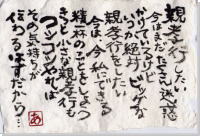 親孝行したい
今はまだたくさん迷惑
かけているけど
いつか絶対ビッグな
親孝行をしたい
今は、今私にできる
精一杯の事をしよう
きっと小さな親孝行も
コツコツやれば
その気持ちが
伝わるはずだから…
あ